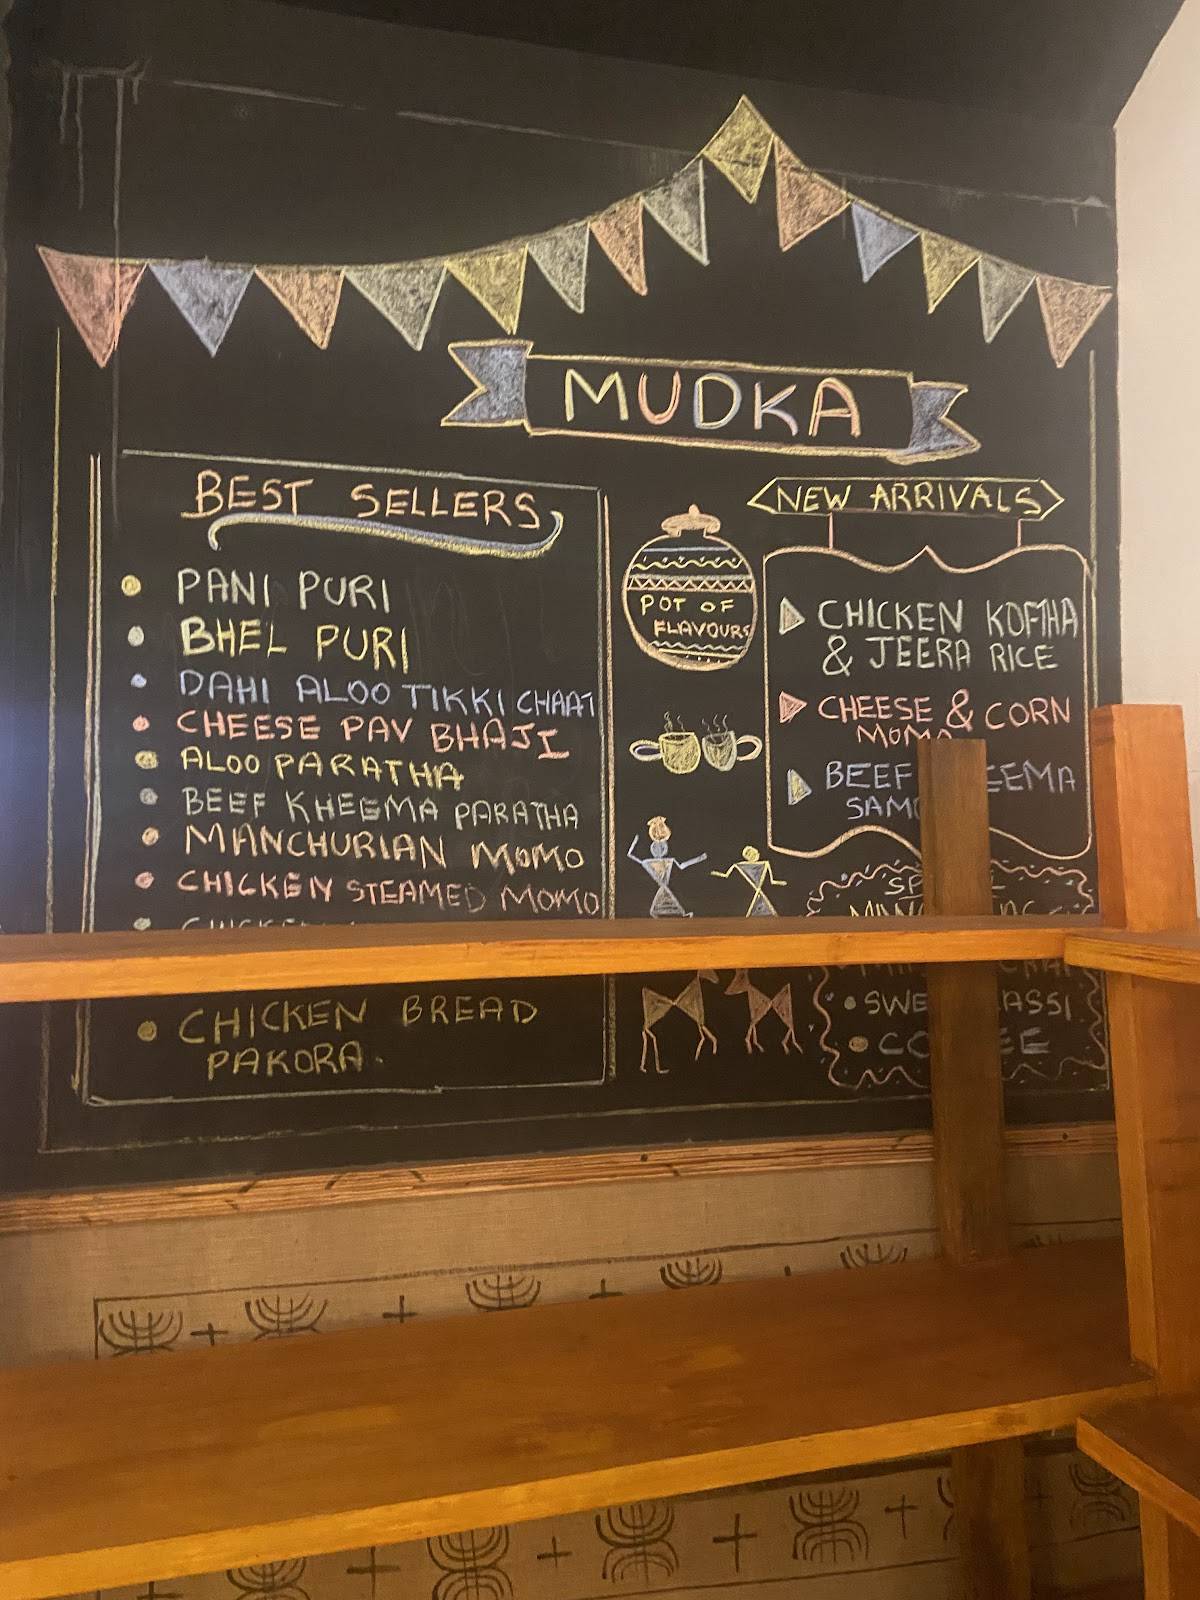 MUDKA
BEST SELLERS
PANI PURI
BHEL PURI
DAHI ALOO TIKKI CHAAT
CHEESE PAV BHAJI
ALOO PARATHA
BEEF KHEEMA PARATHA
MANCHURIAN MOMO
CHICKEN STEAMED MOMO
CHICKEN
CHICKEN BREAD
PAKORA.
POT OF
FLAVOURS
NEW ARRIVALS
CHICKEN KOFTHA
& JEERA RICE
CHEESE & CORN
MOMO
BEEF
LASSI